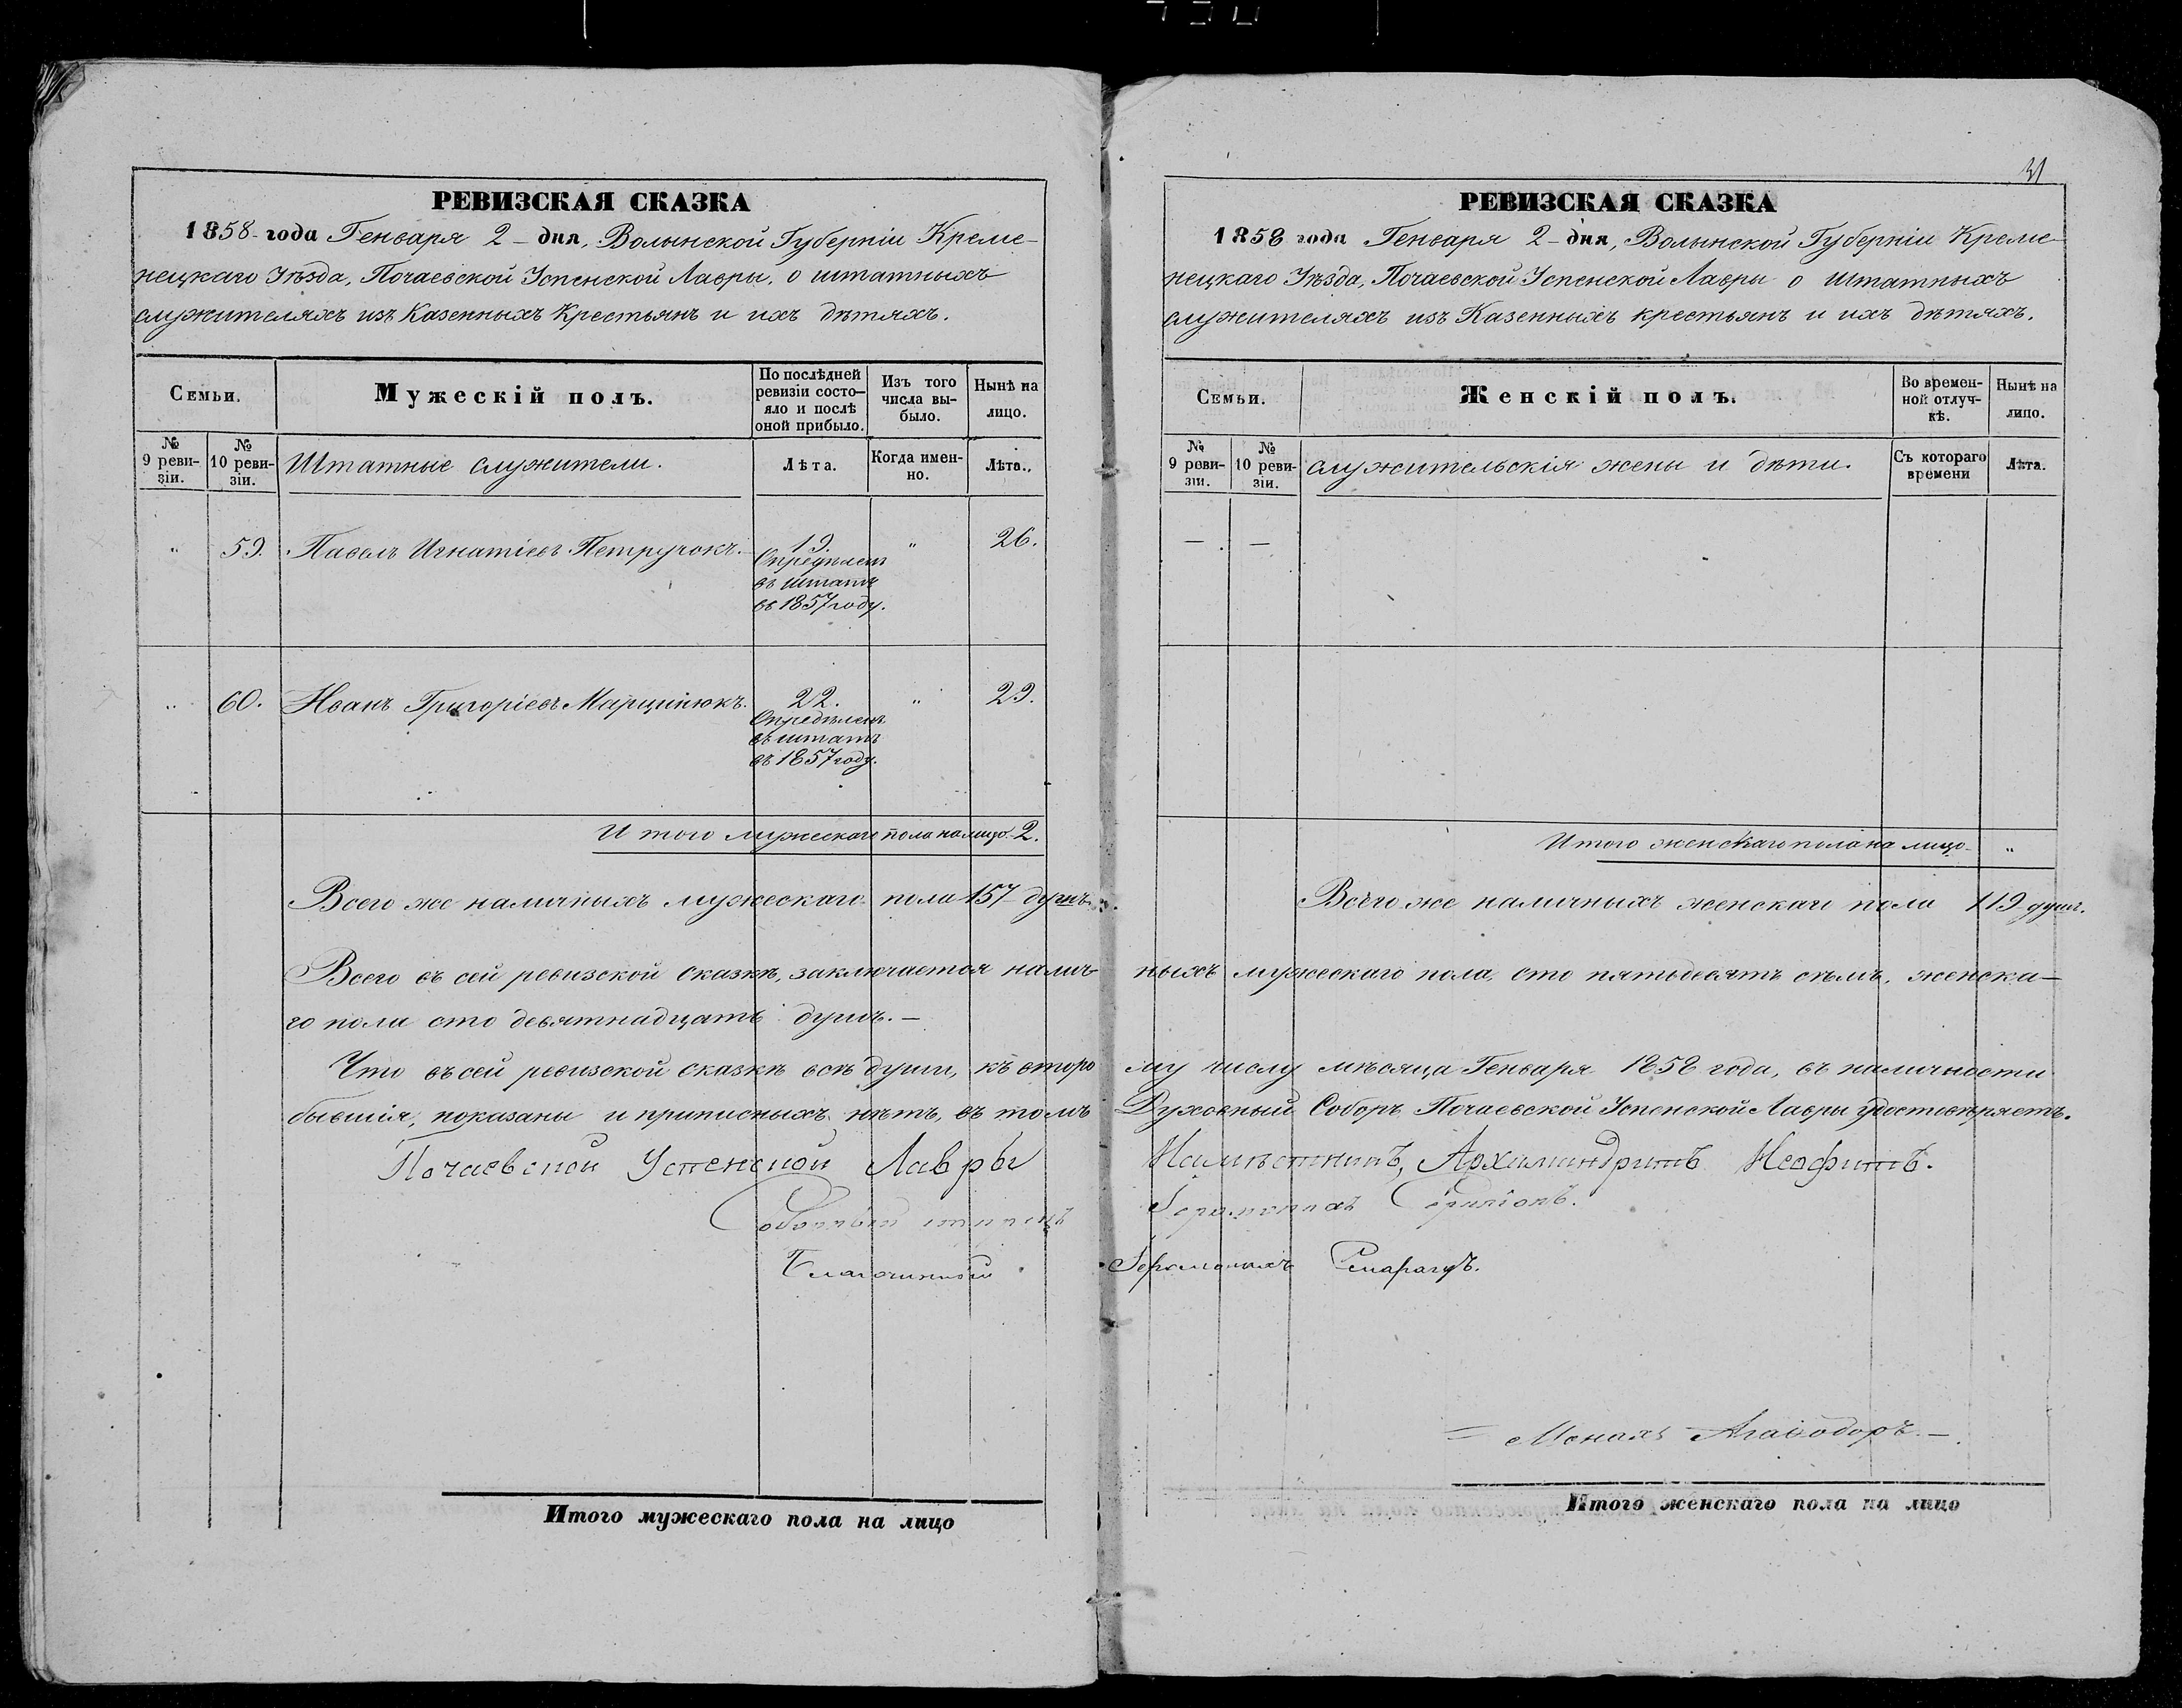 РЕВИЗСКАЯ СКАЗКА
1858 года Генваря 2 – дня, Волынской Губерніи Креме-
нецкаго Уѣзда, Почаевской Успенской Лавры, о штатныхъ
служителяхъ изъ Казенныхъ Крестьянъ и ихъ дѣтяхъ.
Семьи.
Мужескій полъ.
По послѣдней
ревизіи состо-
яло и послѣ
оной прибыло.
Изъ того
числа вы-
было.
Нынѣ на
лицо.
№
9 реви-
зіи.
№
10 реви-
зіи.
Штатные служители.
Лѣта.
Когда имен-
но.
Лѣта.
„ 59. Павелъ Игнатіевъ Петручокъ. 19. „ 26.
Опредѣленъ
въ штатъ
въ 1857 году.
„ 60. Иванъ Григоріевъ Марцинюкъ. 22. „ 29.
Опредѣленъ
въ штатъ
въ 1857 году.
Итого мужескаго пола налицо 2.
Всего же наличныхъ мужескаго пола 157 душъ.
Всего въ сей ревизской сказкѣ, заключается налич-
го пола сто девятнадцать душъ. –
Что въ сей ревизской сказкѣ всѣ души, къ второ
бывшія, показаны и приписныхъ нѣтъ, въ томъ
Почаевской Успенской Лавры
Соборный старецъ
Благочинный
Итого мужескаго пола на лицо
31
РЕВИЗСКАЯ СКАЗКА
1858 года Генваря 2 – дня, Волынской Губерніи Креме-
нецкаго Уѣзда, Почаевской Успенской Лавры о Штатныхъ
служителяхъ изъ Казенныхъ крестьянъ и ихъ дѣтяхъ.
Семьи.
Женскій полъ.
Во времен-
ной отлуч-
кѣ.
Нынѣ на
лицо.
№
9 реви-
зіи.
№
10 реви-
зіи.
служительскія жены и дѣти.
Съ котораго
времени
Лѣта.
— —
Итого женскаго пола на лицо „
Всего же наличныхъ женскаго пола 119 душъ.
ныхъ мужескаго пола, сто пятьдесятъ сѣмь, женска-
му числу мѣсяца Генваря 1858 года, въ наличности
Духовный Соборъ Почаевской Успенской Лавры удостовѣряетъ.
Намѣстникъ, Архимандритъ Неофитъ.
Іеромонахъ
Іеромонахъ Смарагдъ.
Монахъ Агаѳодоръ. –
Итого женскаго пола на лицо